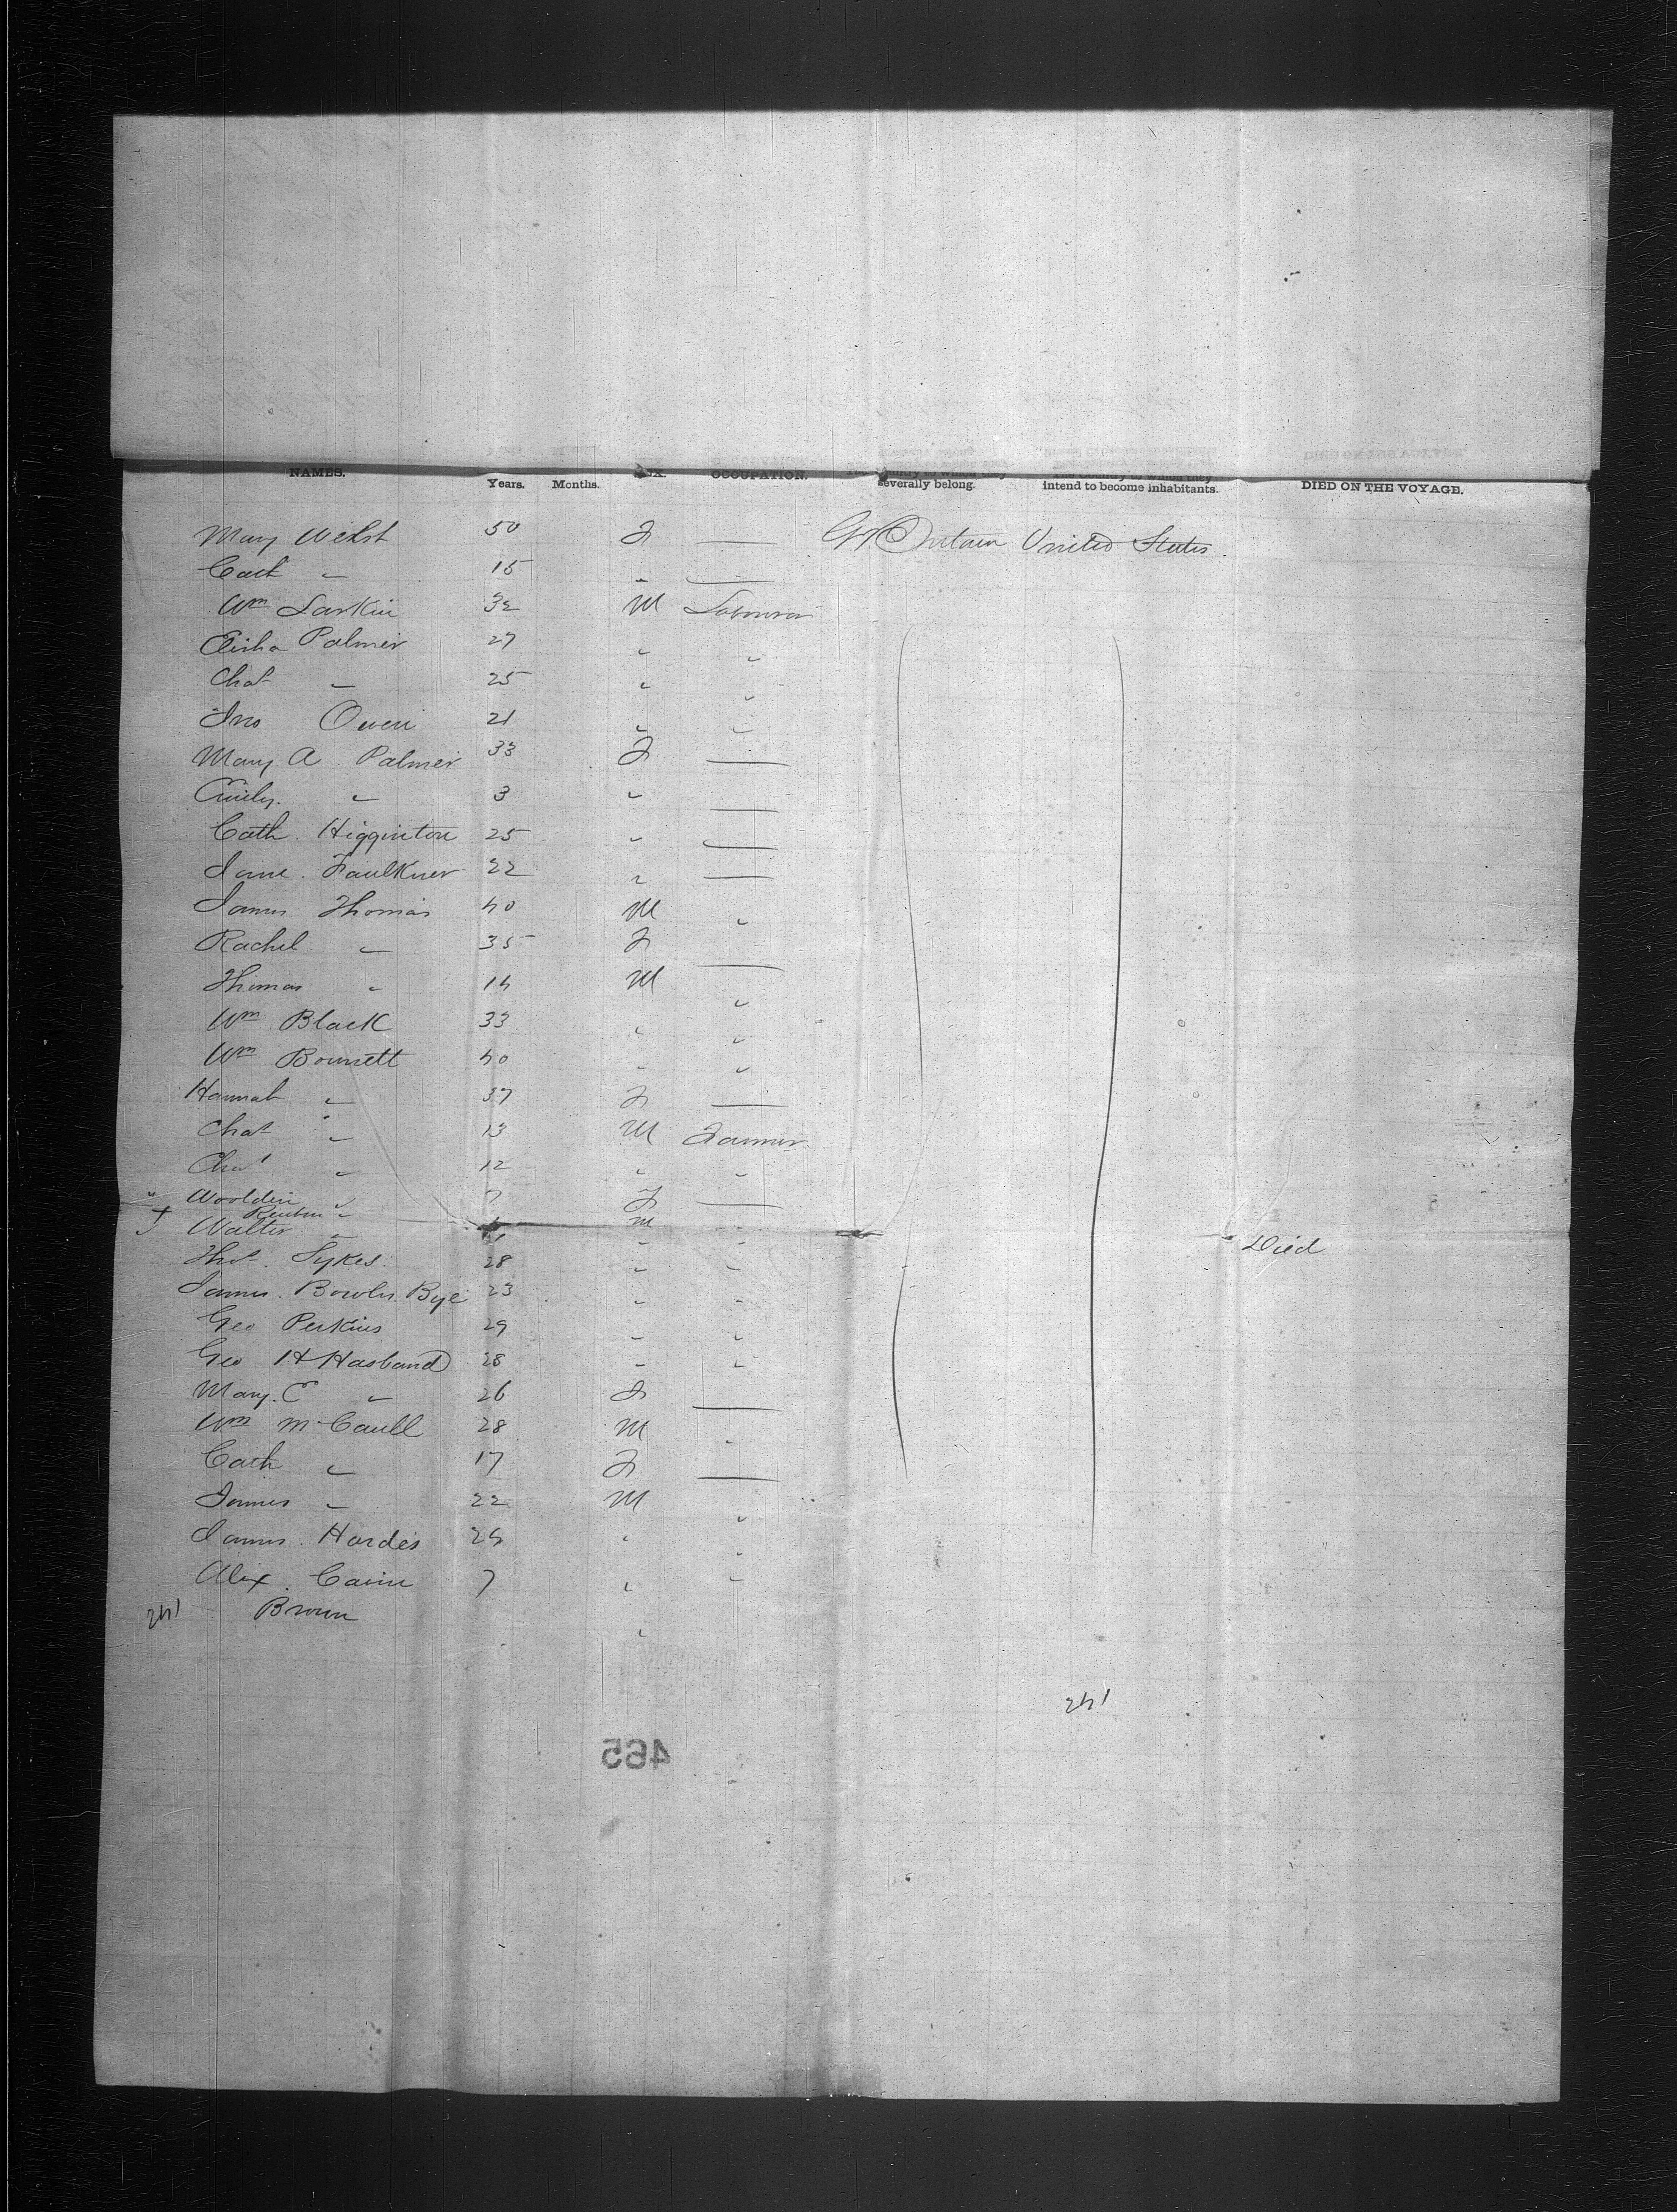 NAMES. Years. Months. SEX. OCCUPATION. severally belong. intend to become inhabitants. DIED ON THE VOYAGE.
Mary Welsh 50 F — Gt Britain United States
Cath " 15 " —
Wm Larkin 32 M Labourer
Elisha Palmer 27 " "
Chas " 25 " "
Jno Owen 21 " "
Mary A Palmer 33 F —
Emily " 3 " —
Cath Higginton 25 " —
Jane Faulkner 22 " —
James Thomas 40 M "
Rachel " 35 F —
Thomas " 14 M "
Wm Black 33 " "
Wm Bonnett 40 " "
Hannah " 37 F —
Chas " 13 M Farmer
Chas " 12 " "
" 7 F —
Reuben " M "
Walter " " " Died
Thos Sykes 28 " "
James Bowler Bye 23 " "
Geo Perkins 29 " "
Geo H Hasband 28 " "
Mary E " 26 F —
Wm McCaull 28 M "
Cath " 17 F —
James " 22 M "
James Hardes 24 " "
Alex 7 " "
Brown "
465